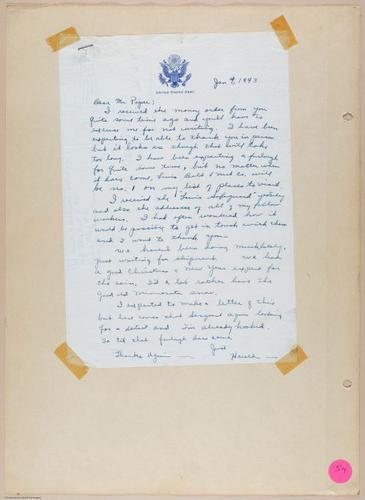 UNITED STATES ARMY
Jan 9, 1943
Dear Mr. Pieper;
I received the money order from you
quite some time ago and you'll have to
excuse me for not writing. I have been
expecting to be able to thank you in person
but it looks as though that will take
too long. I have been expecting a furlough
for quite some time, but no matter when
it does come, Lewis Bolt & Nut Co. will
be no. 1 on my list of places to visit.
I received the "Lewis Safeguard" yesterday
and also the addresses of all of my fellow
workers. I had often wondered how it
would be possible to get in touch with them
and I want to thank you.
We haven't been doing much lately,
just waiting for shipment. We had
a good Christmas & New Years except for
the rain, I'd a lot rather have the
good old Minnesota snow.
I expected to make a letter of this
but here comes that Sergeant again looking
for a detail and I'm already hooked.
So til that furlough does come
Thanks Again Just
54